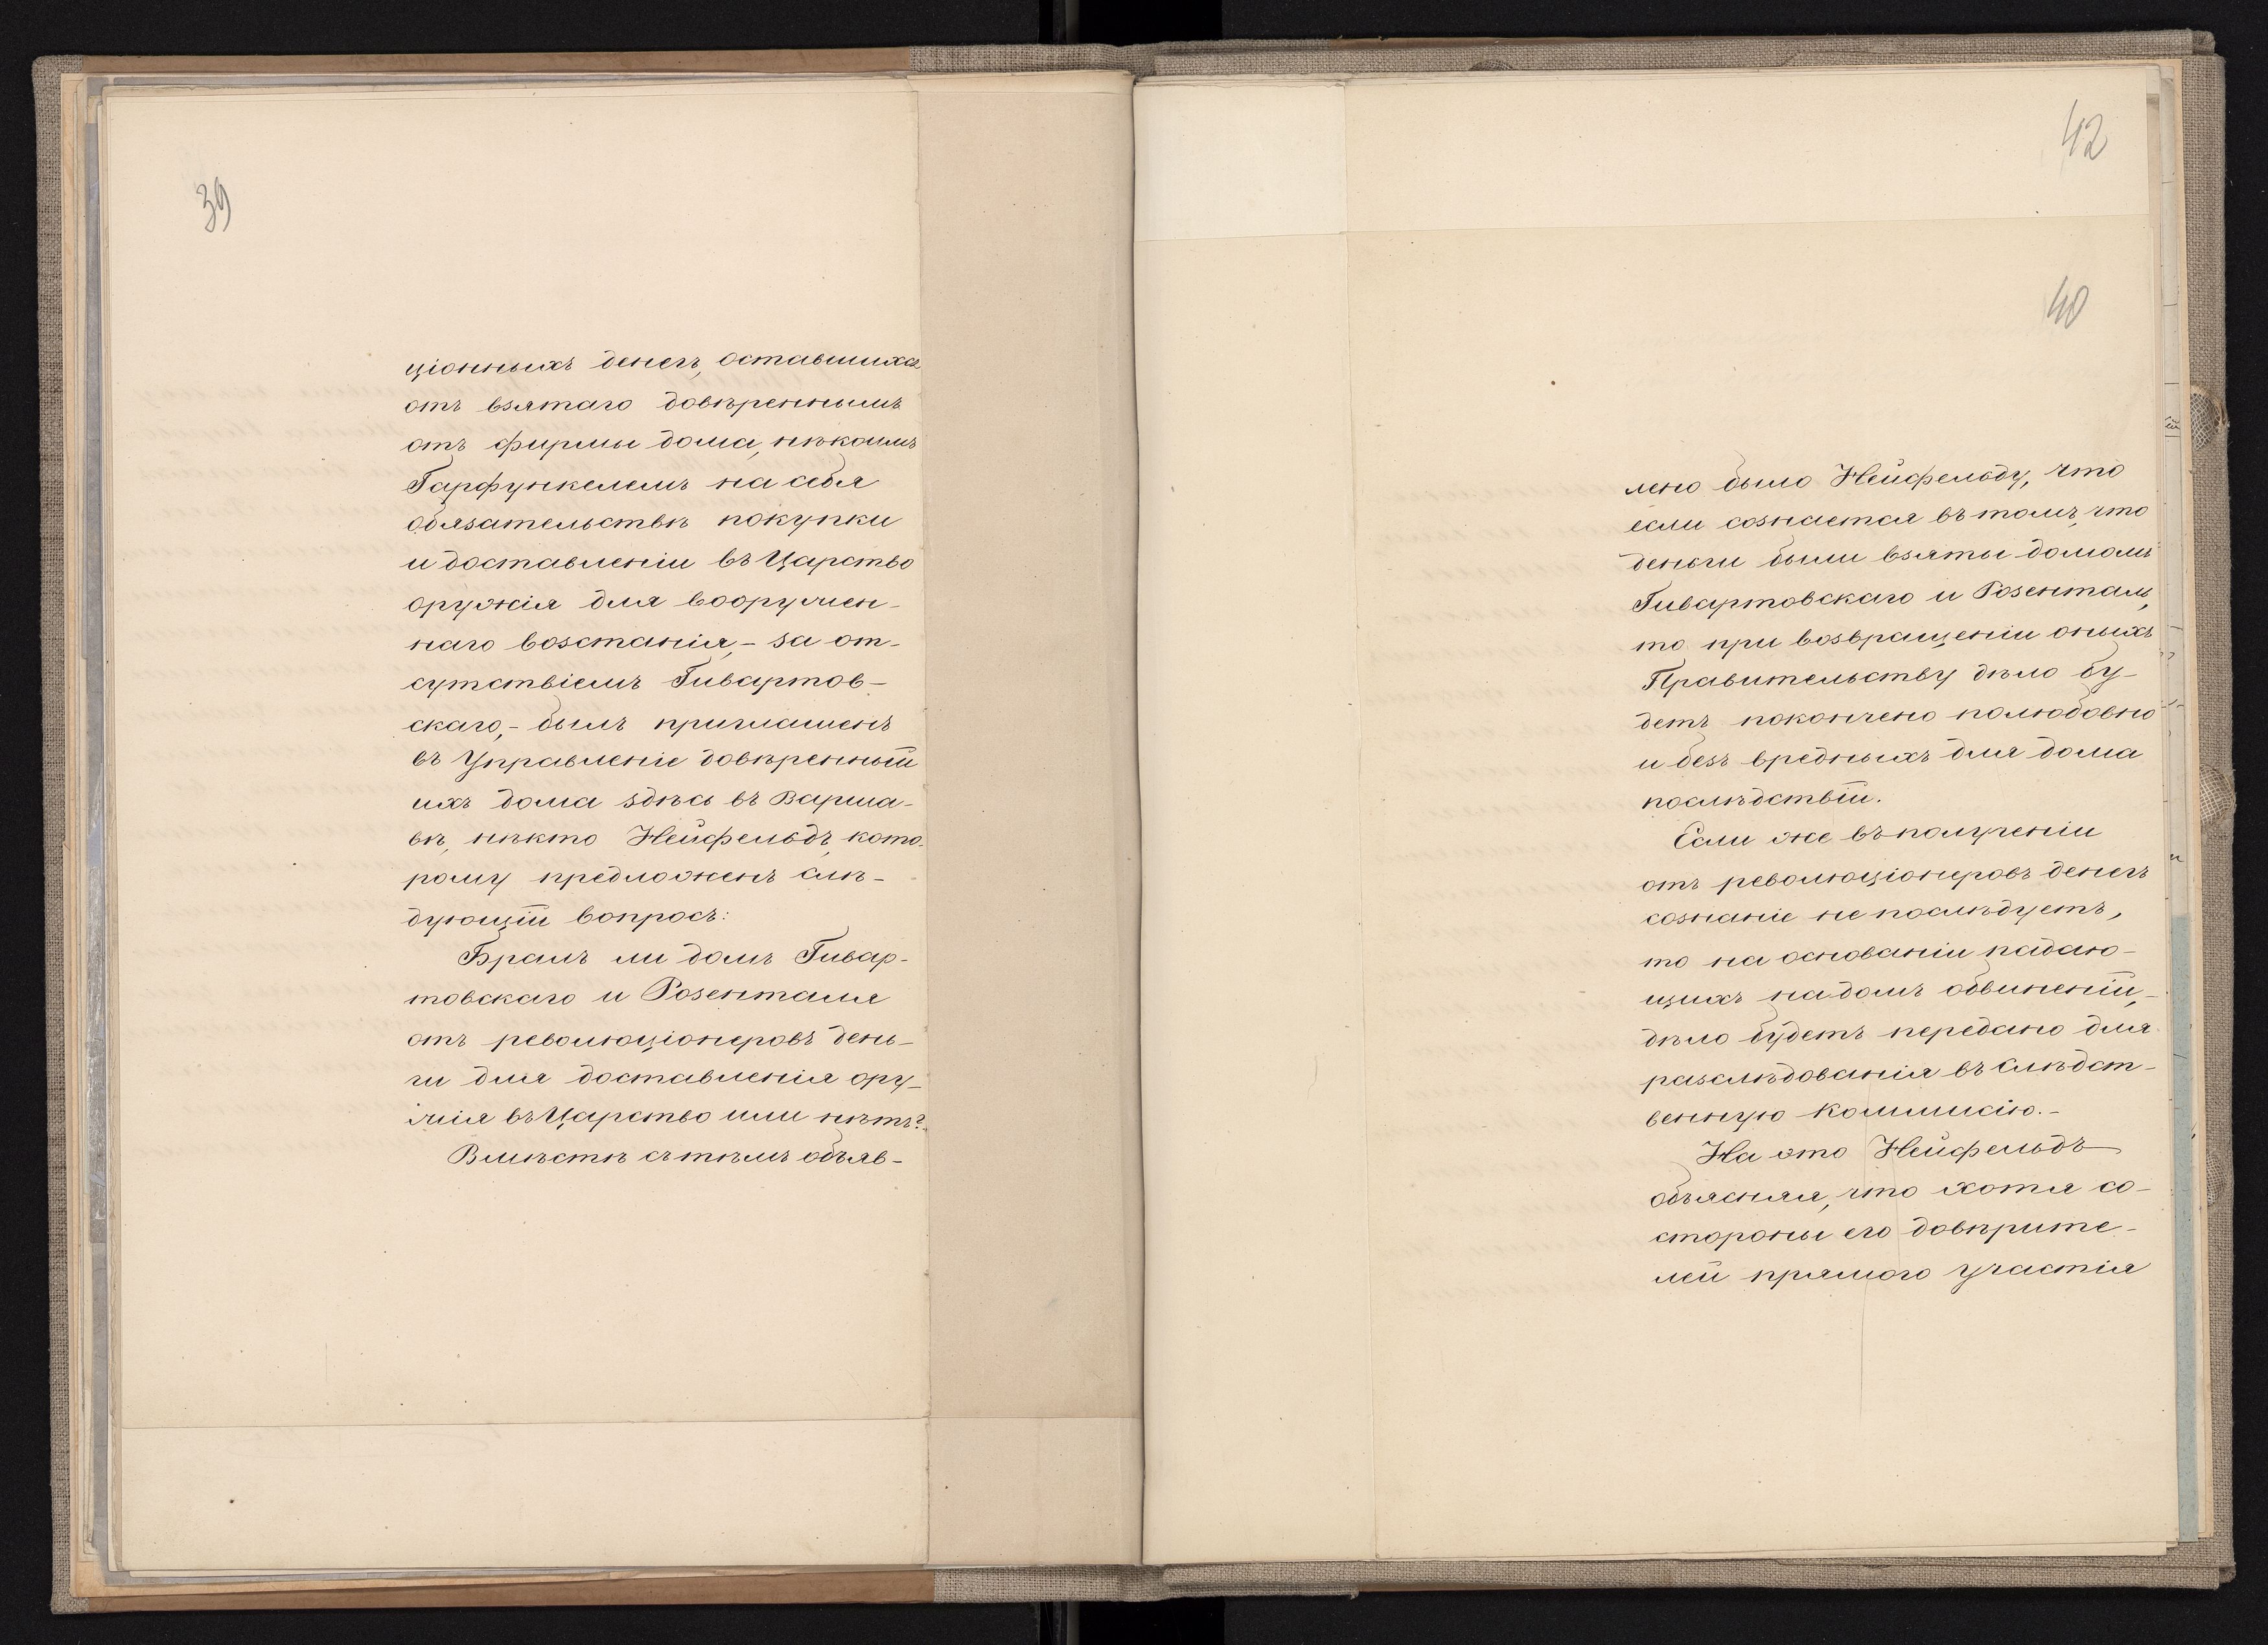 39
ціонныхъ денегъ, оставшихся
отъ взятаго довѣреннымъ
отъ фирмы дома, нѣкаимъ
Гарфункелемъ на себя
обязательствѣ покупки
и доставленіи въ Царство
оружія для вооружен-
наго возстанія,- за от-
сутствіемъ Гивартов-
скаго,- былъ приглашенъ
въ Управленіе довѣренный
ихъ дома здѣсь въ Варша-
вѣ, нѣкто Нейфельдъ, кото-
рому предложенъ слѣ-
дующій вопросъ:
Бралъ ли домъ Гивар-
товскаго и Розенталя
отъ революціонеровъ день-
ги для доставленія ору-
жія въ Царство или нѣтъ?
Вмѣстѣ съ тѣмъ объяв-
42
40
лено было Нейфельду, что
если сознается въ томъ, что
деньги были взяты домомъ
Гивартовскаго и Розенталь,
то при возвращеніи оныхъ
Правительству дѣло бу-
детъ покончено полюбовно
и безъ вредныхъ для дома
послѣдствій.
Если же въ полученіи
отъ революціонеровъ денегъ
сознаніе не послѣдуетъ,
то на основаніи падаю-
щихъ на домъ обвиненій,-
дѣло будетъ передано для
разслѣдованія въ Слѣдст-
венную Коммисію.-
На это Нейфельдъ
объясняя, что хотя со-
стороны его довѣрите-
лей прямого участія